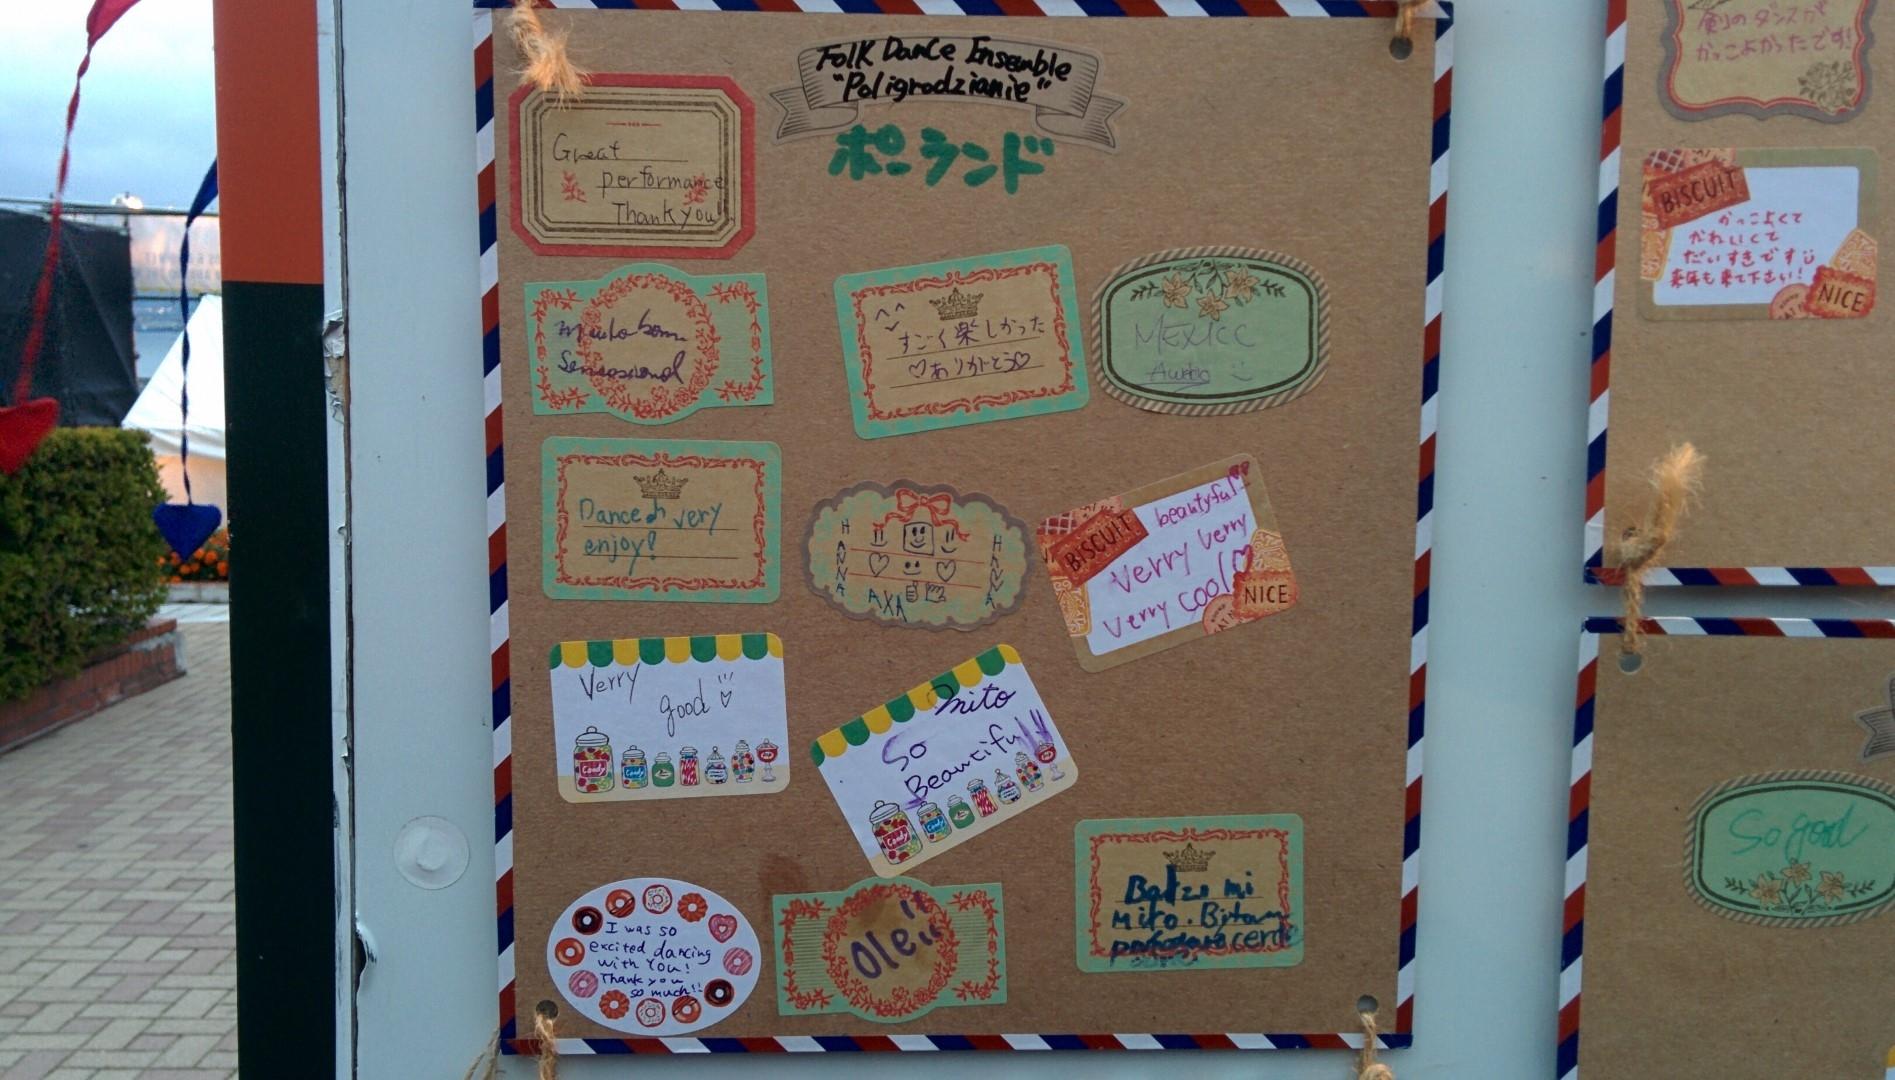 Folk Dance Ensemble
"Poligrodzianie"
ポーランド
Great
performance
Thank you!
muito bom
すごく楽しかった
♡ありがとう♡
MEXICC
Dance♫ very
enjoy!
HAVNA
HAVNA
AXA
BISCUIT
beautyful!!
Verry verry
verry cool!♡
NICE
Verry
good
Candy
Mito
So
Beautiful!!
Candy
I was so
excited dancing
with You!
Thank you
so much!!
Ole!!
mi
剣のダンスが
かっこよかったです!
BISCUIT
かっこよくて
かわいくて
だいすきです
来年も来て下さい!
NICE
So good